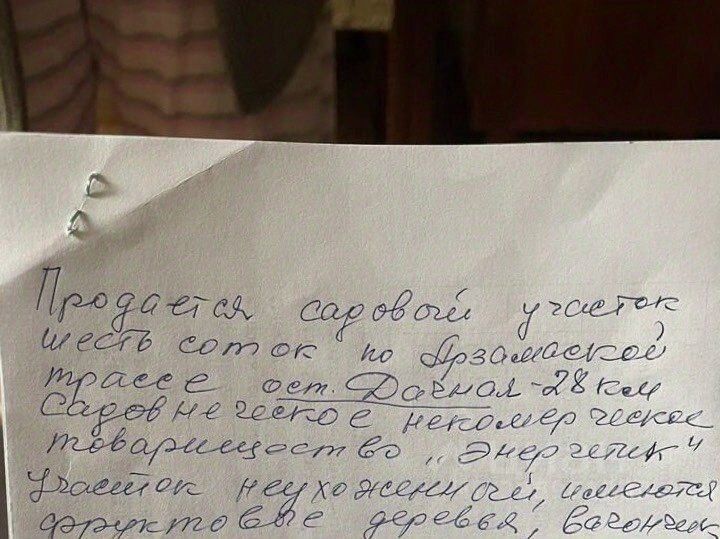 Продается садовый участок
шесть соток по Арзамаской
трассе ост. Дачная - 28 км
Садовнеческое некомерческое
товарищество „Энергетик"
Участок неухоженный, имеются
фруктовые деревья, вагончик